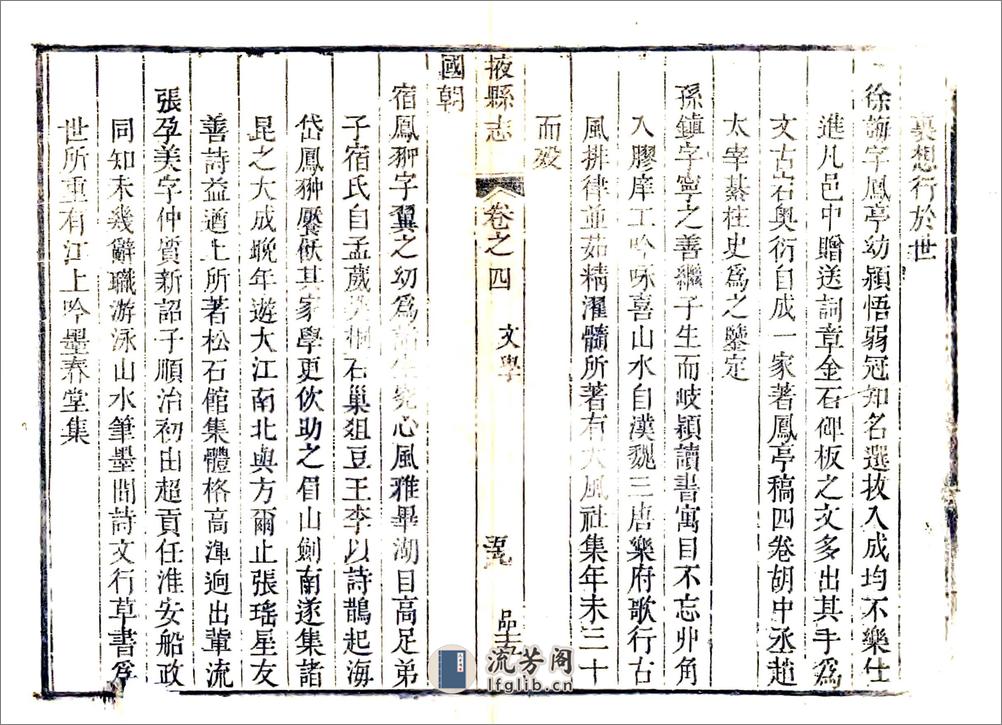 裏想行於世
徐誨字鳳亭幼穎悟弱冠知名選抜入成均不樂仕
進凡邑中贈送詞章金石碑板之文多出其手為
文古石奥衍自成一家著鳳亭稿四卷胡中丞趙
太宰綦柱史爲之鑒定
孫鎮字寧之善繼子生而岐穎讀書寓目不忘丱角
入膠庠工吟咏喜山水自漢魏三唐樂府歌行古
風排律並茹精濯髓所著有大風社集年未三十
而歿
掖縣志
卷之四
文學
五九
國朝
宿鳳翀字翼之幼爲究心風雅畢湖目高足弟
子宿氏自孟石巢俎豆王李以詩鵲起海
岱鳳翀饜飫其家學更佽助之眉山劍南遂集諸
昆之大成晩年遊大江南北與方爾止張瑤星友
善詩益遒上所著松石館集體格高渾迥出輩流
張孕美字仲質新詔子順治初由超貢任淮安船政
同知未幾辭職游泳山水筆墨間詩文行草書爲
世所重有江上吟墨春堂集
流芳阁
lfglib.cn